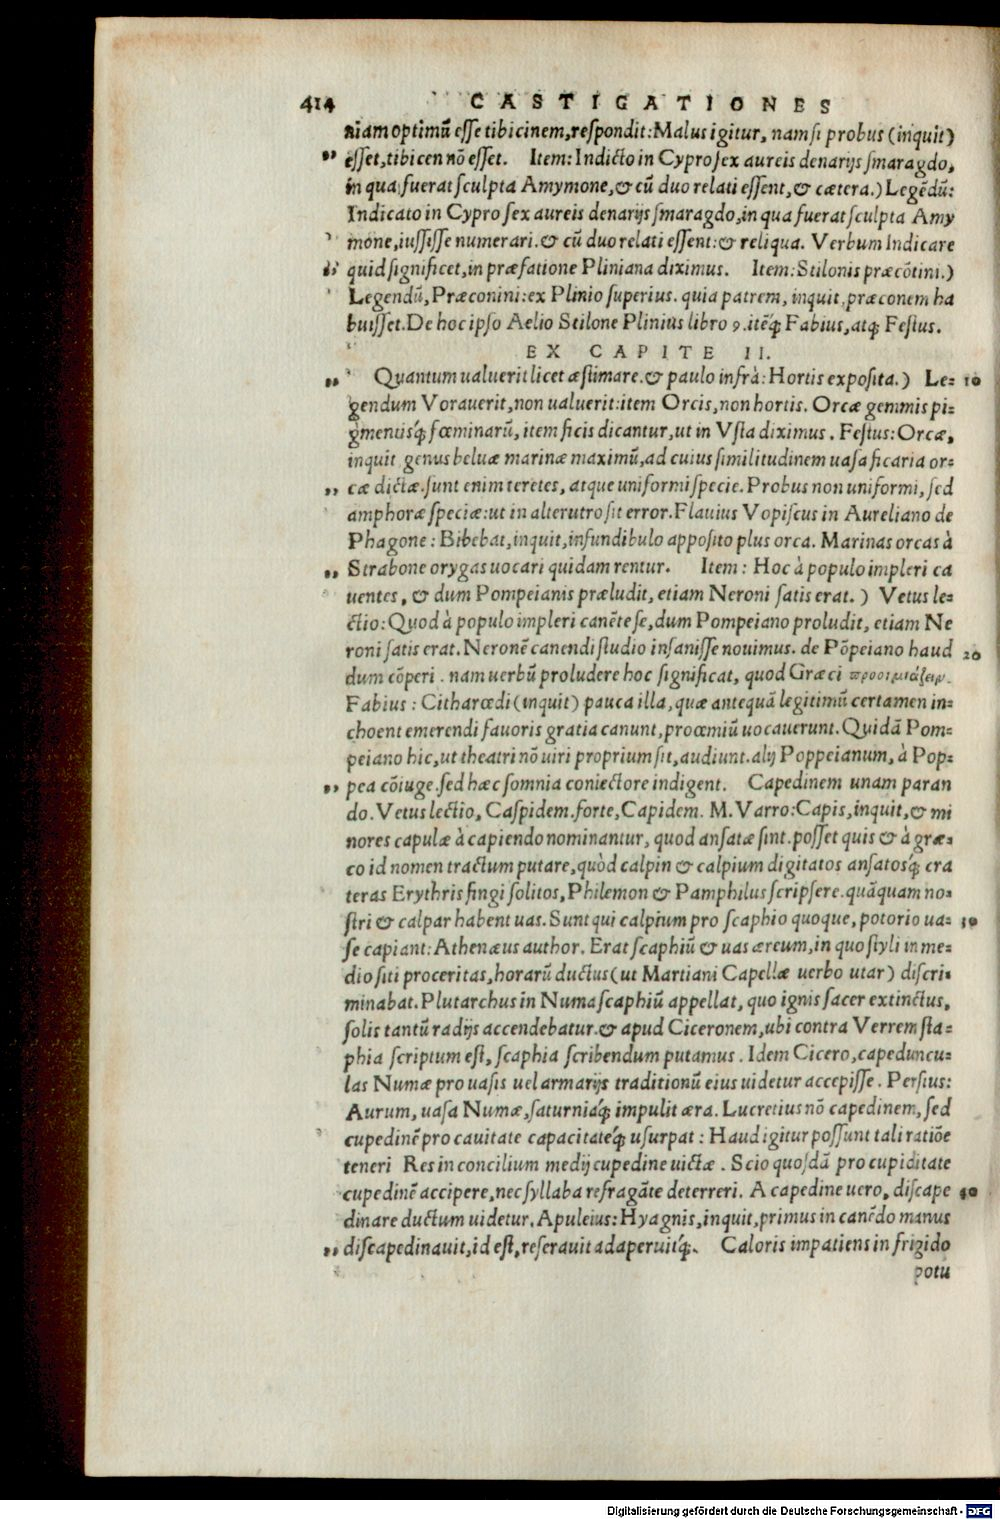 414 CASTIGATIONES
niam optimũ esse tibicinem, respondit: Malus igitur, nam si probus (inquit)
„ esset, tibicen nõ esset. Item: Indicto in Cypro sex aureis denarijs smaragdo,
in qua fuerat sculpta Amymone, & cũ duo relati essent, & cætera.) Legẽdũ:
Indicato in Cypro sex aureis denarijs smaragdo, in qua fuerat sculpta Amy
mone, iussisse numerari. & cũ duo relati essent: & reliqua. Verbum Indicare
„ quid significet, in præfatione Pliniana diximus. Item: Stilonis præcõtini.)
Legendũ, Præconini: ex Plinio superius. quia patrem, inquit, præconem ha
buisset. De hoc ipso Aelio Stilone Plinius libro 9. itẽq; Fabius, atq; Festus.
EX CAPITE II.
„ Quantum ualuerit licet æstimare. & paulo infrà: Hortis exposita.) Le= 10
gendum Vorauerit, non ualuerit: item Orcis, non hortis. Orcæ gemmis pi=
gmentisq́; fœminarũ, item ficis dicantur, ut in Vsta diximus. Festus: Orcæ,
inquit genus beluæ marinæ maximũ, ad cuius similitudinem uasa ficaria or=
„ cæ dictæ. sunt enim teretes, atque uniformi specie. Probus non uniformi, sed
amphoræ speciæ: ut in alterutro sit error. Flauius Vopiscus in Aureliano de
Phagone: Bibebat, inquit, infundibulo apposito plus orca. Marinas orcas à
„ Strabone orygas uocari quidam rentur. Item: Hoc à populo impleri ca
uentes, & dum Pompeianis præludit, etiam Neroni satis erat.) Vetus le=
ctio: Quod à populo impleri canẽte se, dum Pompeiano proludit, etiam Ne
roni satis erat. Neronẽ canendi studio insanisse nouimus. de Põpeiano haud 20
dum cõperi. nam uerbũ proludere hoc significat, quod Græci προοιμιάζειν.
Fabius: Citharœdi (inquit) pauca illa, quæ antequã legitimũ certamen in=
choent emerendi fauoris gratia canunt, proœmiũ uocauerunt. Quidã Pom=
peiano hic, ut theatri nõ uiri proprium sit, audiunt. alij Poppeianum, à Pop=
„ pea cõiuge. sed hæc somnia coniectore indigent. Capedinem unam paran
do. Vetus lectio, Caspidem. forte, Capidem. M. Varro: Capis, inquit, & mi
nores capulæ à capiendo nominantur, quod ansatæ sint. posset quis & à græ=
co id nomen tractum putare, quòd calpin & calpium digitatos ansatosq́; cra
teras Erythris fingi solitos, Philemon & Pamphilus scripsere. quãquam no=
stri & calpar habent uas. Sunt qui calpium pro scaphio quoque, potorio ua= 30
se capiant: Athenæus author. Erat scaphiũ & uas æreum, in quo styli in me=
dio siti proceritas, horarũ ductus (ut Martiani Capellæ uerbo utar) discri=
minabat. Plutarchus in Numa scaphiũ appellat, quo ignis sacer extinctus,
solis tantũ radijs accendebatur. & apud Ciceronem, ubi contra Verrem sta=
phia scriptum est, scaphia scribendum putamus. Idem Cicero, capeduncu=
las Numæ pro uasis uel armarijs traditionũ eius uidetur accepisse. Persius:
Aurum, uasa Numæ, saturniaq́; impulit æra. Lucretius nõ capedinem, sed
cupedinẽ pro cauitate capacitateq́; usurpat: Haud igitur possunt tali ratiõe
teneri Res in concilium medij cupedine uictæ. Scio quosdã pro cupiditate
cupedinẽ accipere, nec syllaba refragãte deterreri. A capedine uero, discape 40
dinare ductum uidetur. Apuleius: Hyagnis, inquit, primus in canẽdo manus
„ discapedinauit, id est, reserauit adaperuitq́;. Caloris impatiens in frigido
potu
Digitalisierung gefördert durch die Deutsche Forschungsgemeinschaft - DFG